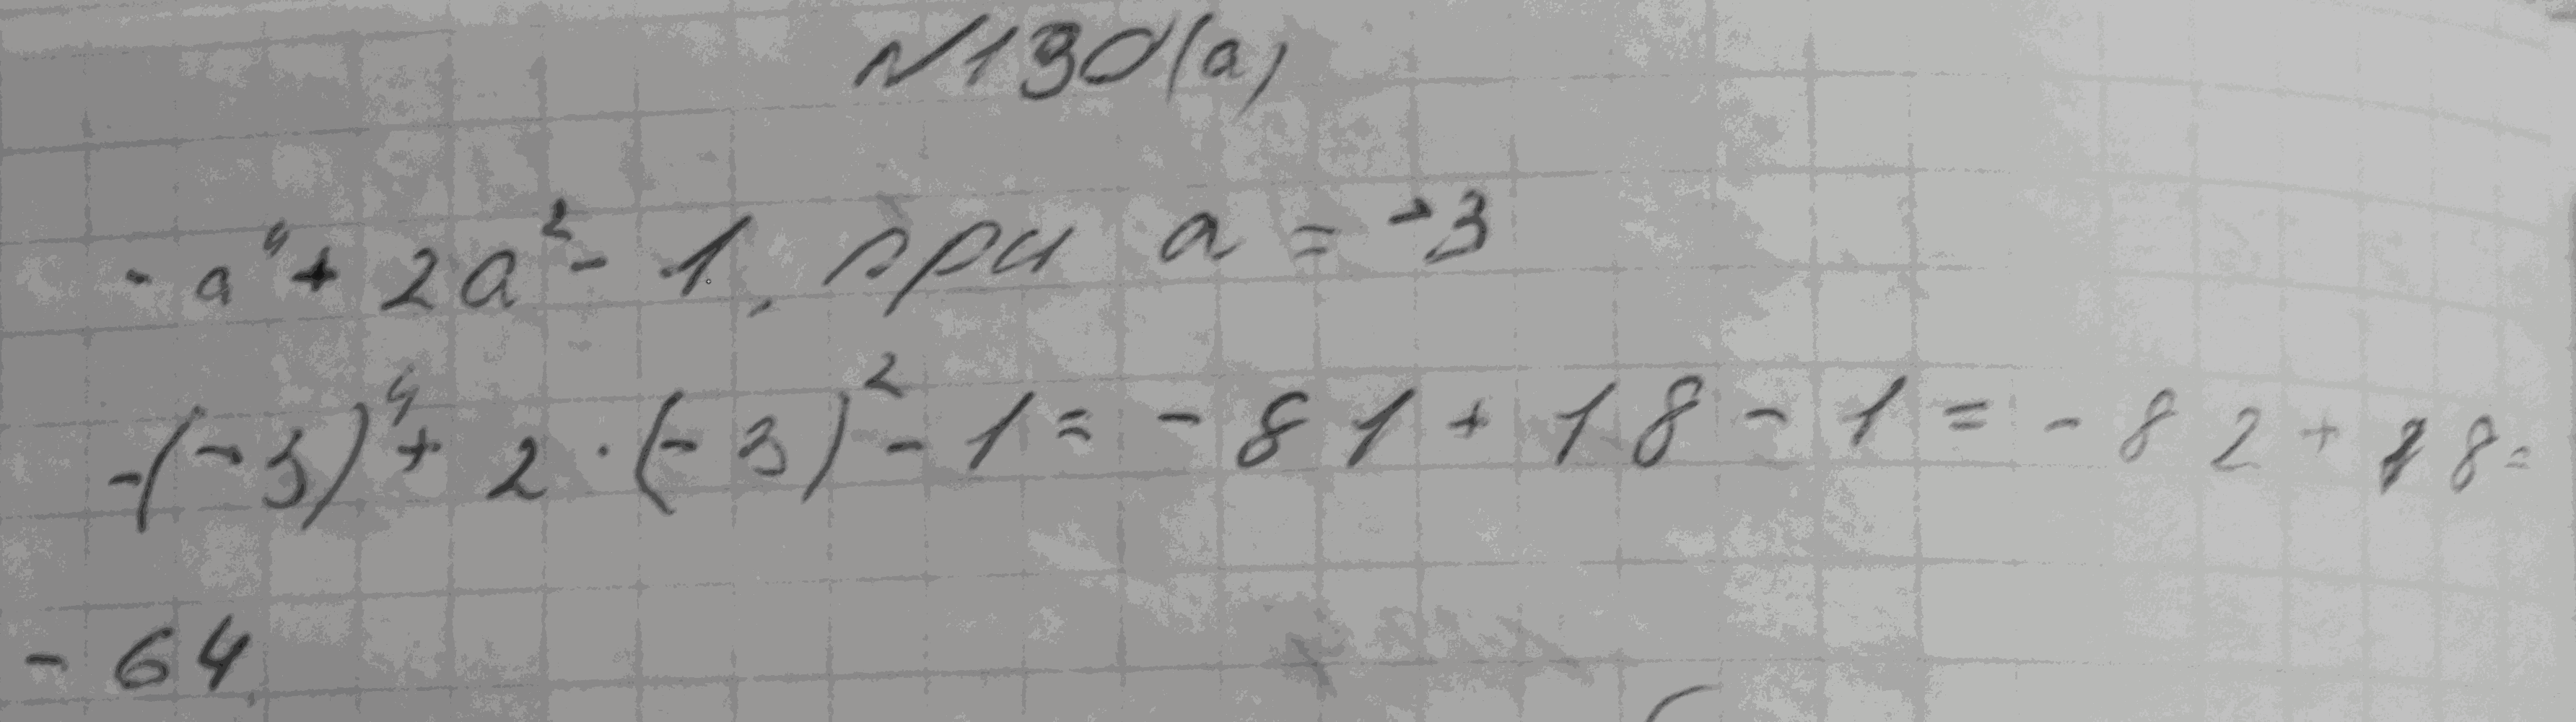 №130(а)
- a⁴ + 2a² - 1, при a = -3
-(-3)⁴ + 2 · (-3)² - 1 = - 81 + 18 - 1 = - 82 + 18 =
- 64